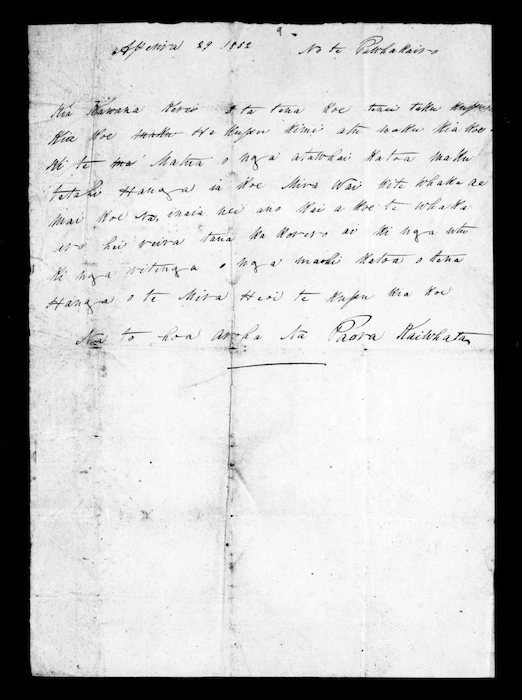 Aperira 29 1852 No te Pawhakairo
Kia Kawana Kerei e ta tena koe tenei taku kupu
Kia koe He kupu kimi atu naku kia koe
ki te Matua o nga atawhai katoa maku
tetahi Hanga ia koe Mira Wai kite whaka ae
mai koe inaia nei ano kei a koe te whaka
aro hei reira tana ka korero ai ki nga utu
ki nga ritenga o nga mahi katoa o tena
Hanga o te Mira Heoi te kupu kia koe
Na to hoa aroha Na Paora Kaiwhata